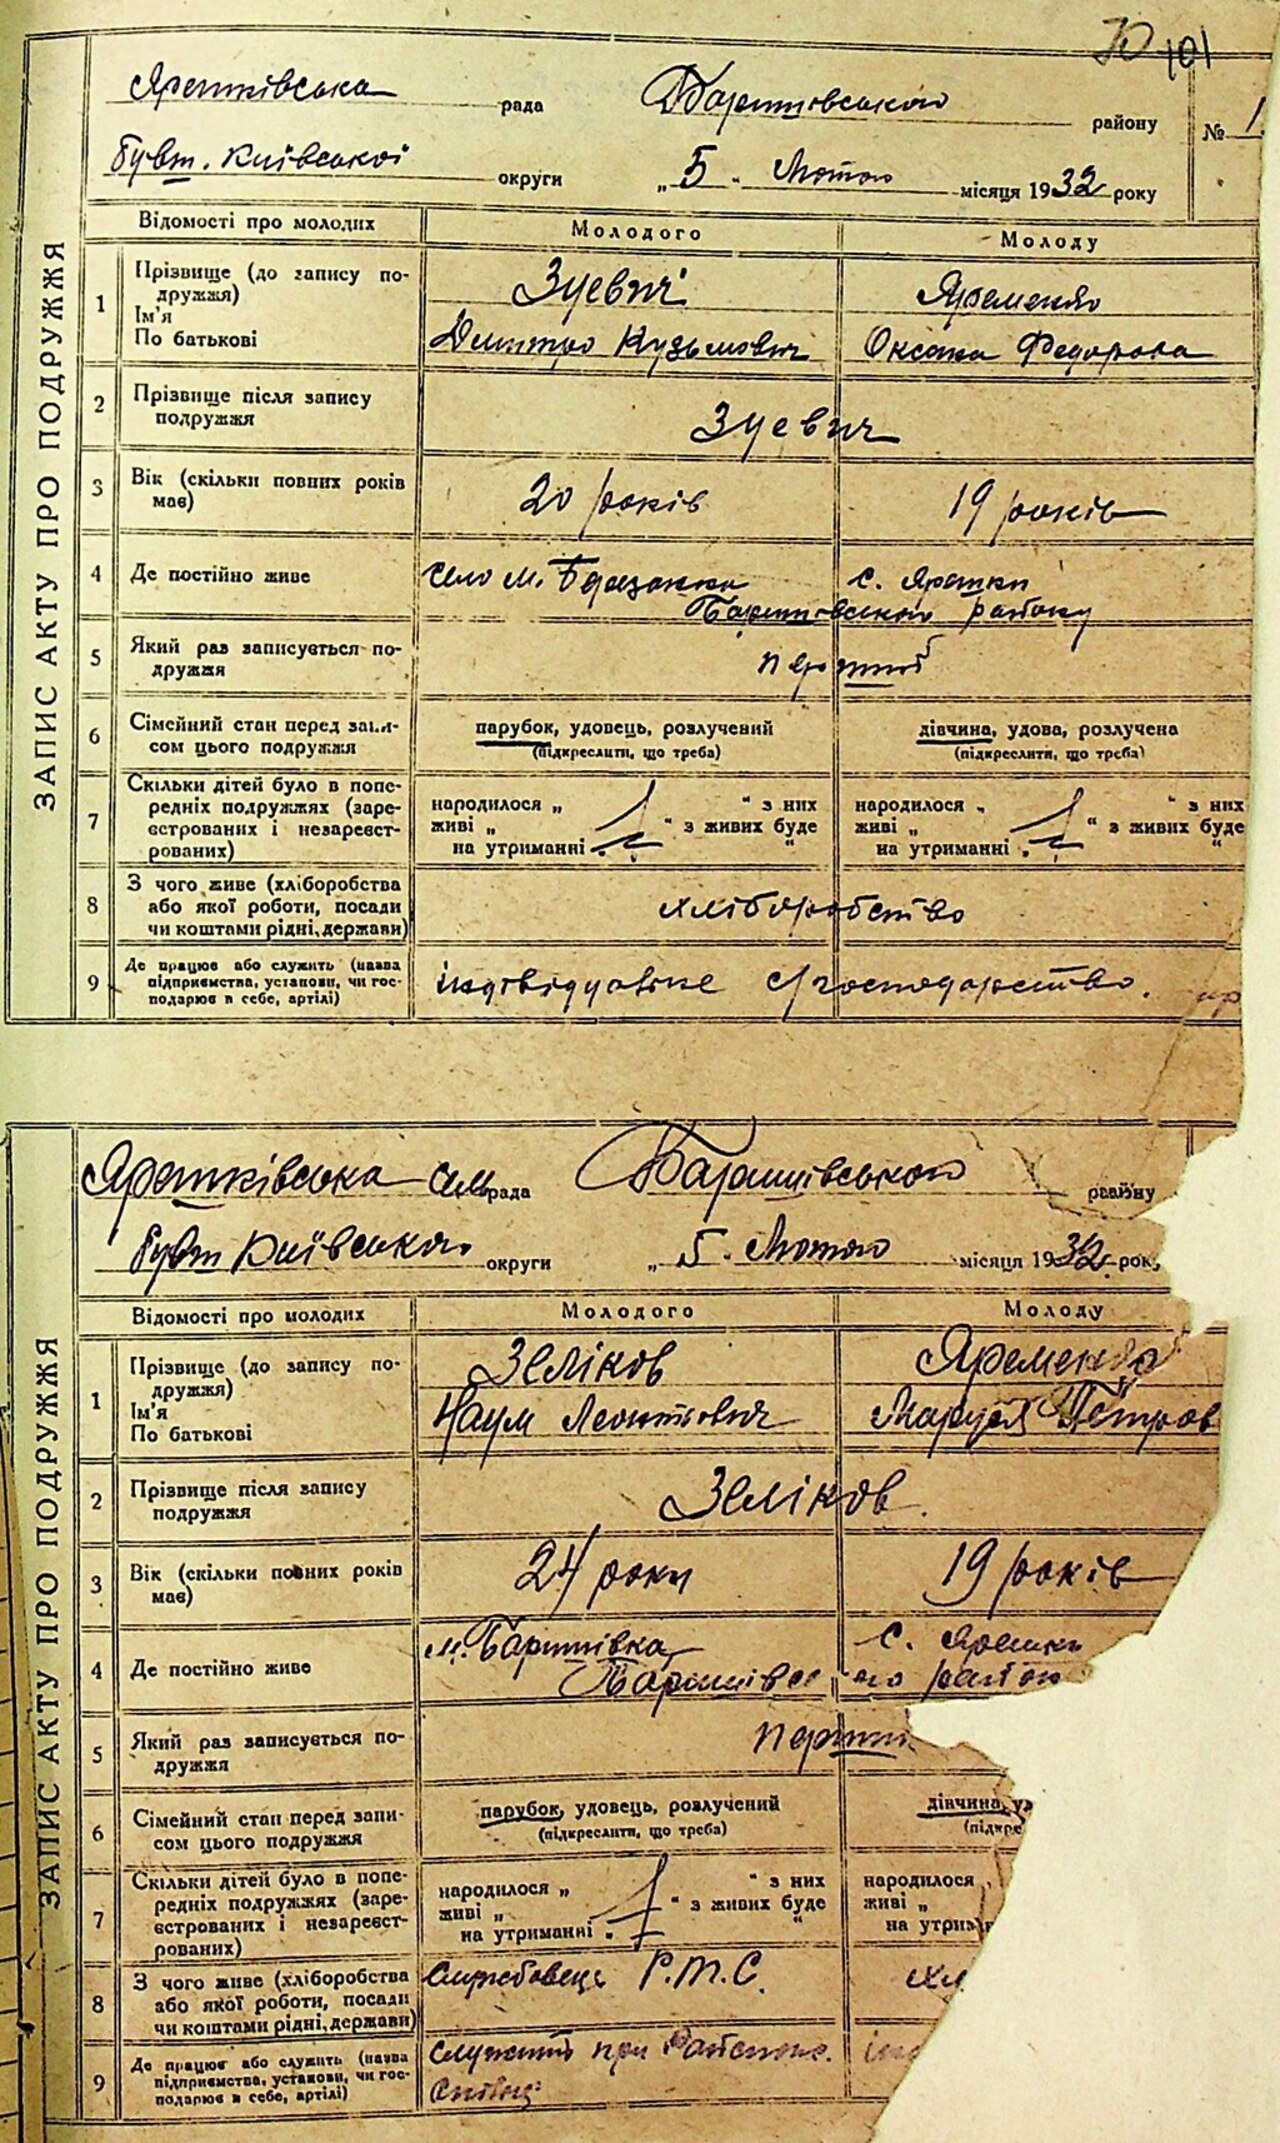 101
Ярешківська рада Баришівського району № 1
бувш. Київської округи „ 5 " Лютого місяця 1932 року
ЗАПИС АКТУ ПРО ПОДРУЖЖЯ
Відомості про молодих Молодого Молоду
1 Прізвище (до запису подружжя) Зуевич Яременко
Ім'я
По батькові Дмитро Кузьмович Оксана Федорова
2 Прізвище після запису
подружжя Зуевич
3 Вік (скільки повних років
має) 20 років 19 років
4 Де постійно живе село М. Березанка с. Ярешки
Баришівського району
5 Який раз записується по-
дружжя перший
6 Сімейний стан перед запи-
сом цього подружжя
парубок, удовець, розлучений дівчина, удова, розлучена
(підкреслити, що треба) (підкреслити, що треба)
7 Скільки дітей було в попе-
редніх подружжях (заре-
єстрованих і незареєст-
рованих)
народилося „ " з них народилося „ " з них
живі „ " з живих буде живі „ " з живих буде
на утриманні „ " на утриманні „ "
8 З чого живе (хліборобства
або якої роботи, посади
чи коштами рідні, держави)
хліборобство
9 Де працює або служить (назва
підприємства, установи, чи гос-
подарює в себе, артілі)
індівідуальне с/господарство.
Ярешківська сільрада Баришівського району
бувш Київської округи „ 5 " Лютого місяця 1932 рок
ЗАПИС АКТУ ПРО ПОДРУЖЖЯ
Відомості про молодих Молодого Молоду
1 Прізвище (до запису по-
дружжя) Зеліков Яременко
Ім'я
По батькові Наум Леонтьович Маруся Петров
2 Прізвище після запису
подружжя Зеліков.
3 Вік (скільки повних років
має) 24 роки 19 років
4 Де постійно живе м. Баришівка с. Ярешки
5 Який раз записується по-
дружжя
6 Сімейний стан перед запи-
сом цього подружжя
парубок, удовець, розлучений дівчина, уд
(підкреслити, що треба) (підкре
7 Скільки дітей було в попе-
редніх подружжях (заре-
єстрованих і незареєст-
рованих)
народилося „ " з них народилося „
живі „ " з живих буде живі „
на утриманні „ " на утриман
8 З чого живе (хліборобства
або якої роботи, посади
чи коштами рідні, держави)
Службовець Р.М.С. хл
9 Де працює або служить (назва
підприємства, установи, чи гос-
подарює в себе, артілі)
служить при інд